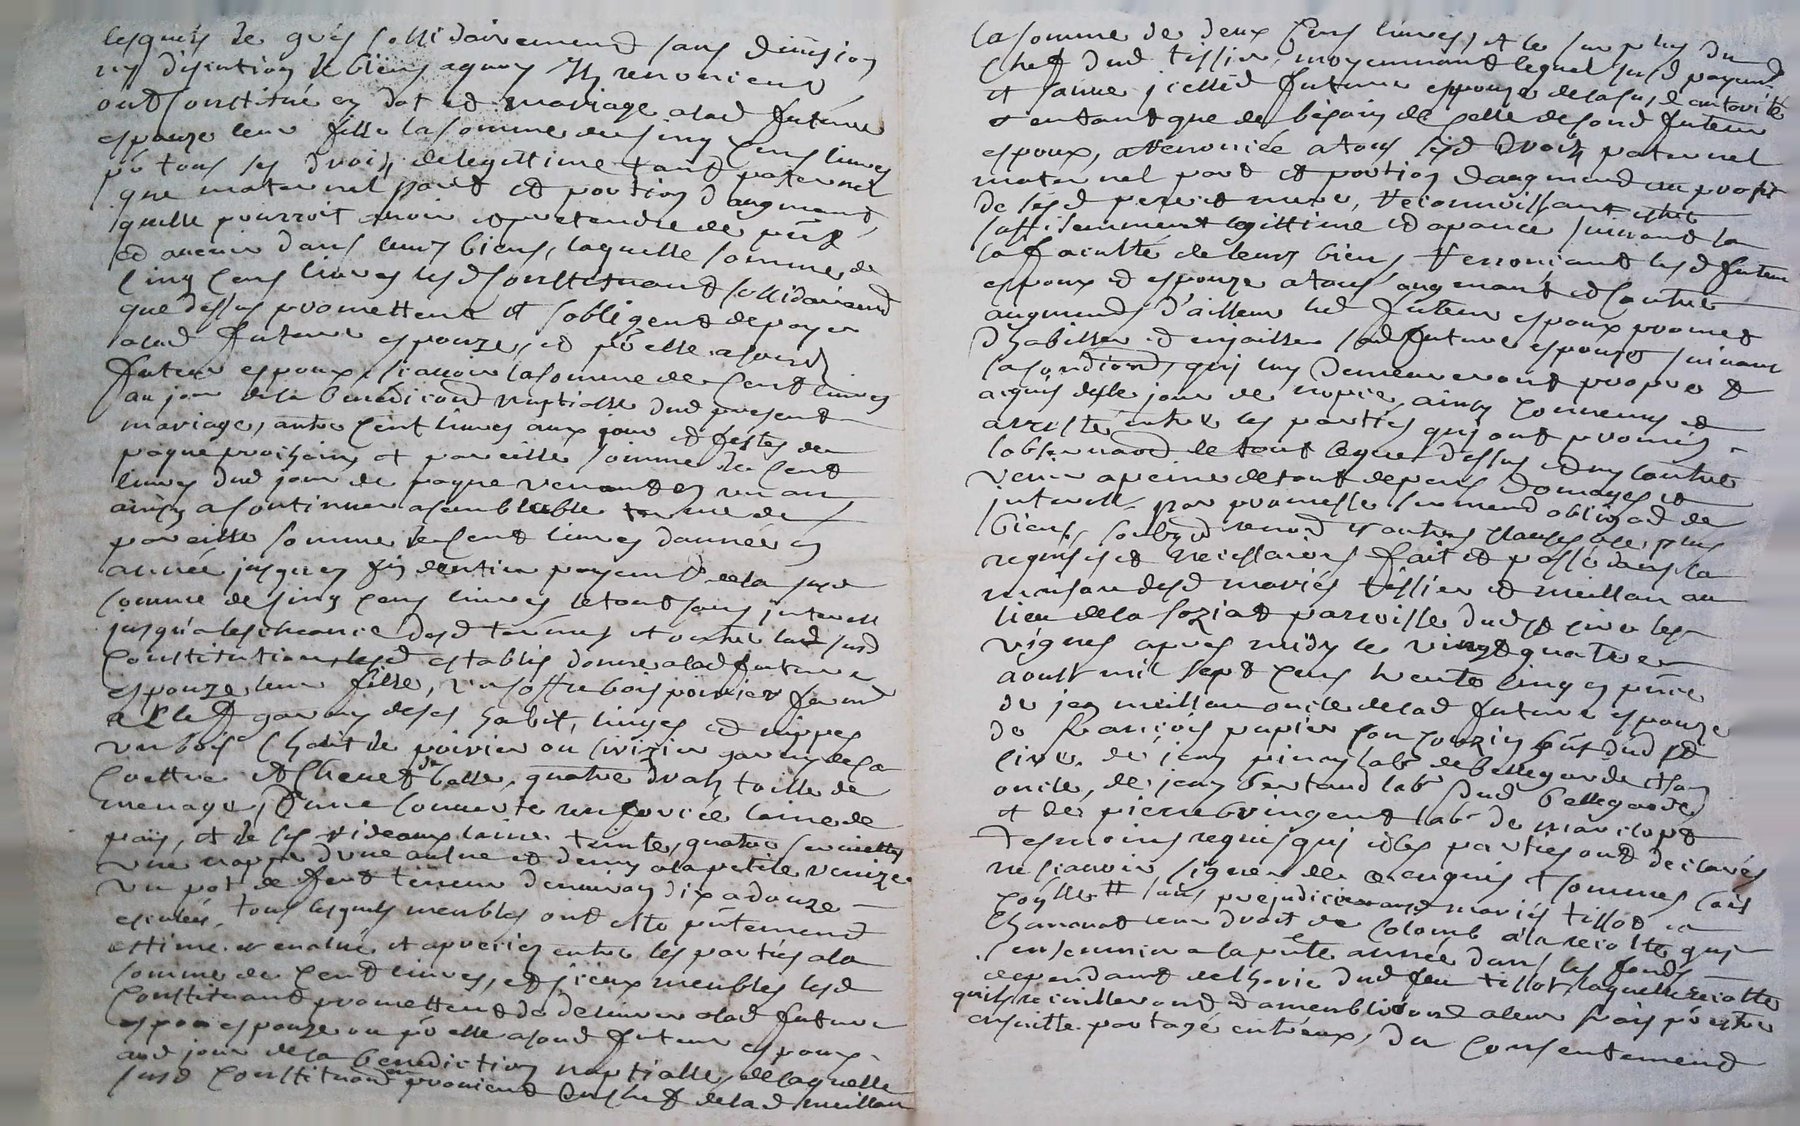 lesquels de grés sollidairement sans division
ny discution de biens aquoy Ils renoncient
ont constitué en dot et mariage alad future
espouze leur fille la somme de sinq cens livres
pr tous ses droits de legittime tant paternel
que maternel part et portion d'augment
quelle pourroit avoir et pretendre de pñt
et avenir dans leurs biens, laquelle somme de
cinq cens livres lesd constituant sollidairemt
que dessus promettent et sobligent de payer
alad future espouze, et pr elle asond
futeur espoux, scavoir la somme de cent livres
au jour de la benediction nuptialle dud present
mariage, autre cent livres aux jour et festes de
paque prochain et pareille somme de cent
livres dud jour de paque venant en un an
ainsy a continuer a semblable terme de
pareille somme de cent livres d'année en
année jusques fin d'entier payement de la susd
somme de sinq cens livres le tout sans interest
jusqua lescheance desd termes et outre lad susd
constitution, lesd establis donne alad future
espouze leur fille, un coffre bois poirier fermt
a clef garny de ses habit, linges et nippes
un bois chalit de poirier ou cirizier garny de sa
coettre et chevet de balle, quatre draps toille de
menage, d'une couverte laine de
pais, et de ses rideaux laine teinte, quatre serviettes
une nappe d'une aulne et demy a la petite venize
un pot de fert tenens environ dix a douze
esculées, tous lesquels meubles ont esté pntement
estimé et evalué et apreciez entre les partiés a la
somme de cent livres, et iceux meubles lesd
constituant promettent de delivrer alad future
espouze ou pr elle asond futeur espoux
aud jour de la benediction nuptialle, de laquelle
susd constituon provient du chef de lad meillan
la somme de deux cens livres, et le surplus du
chef dud tissier, moyennant lequel susd payemt
et jcelled future espouze de sa susd autorité
et entant que de bezoin de celle de sond futeur
espoux, a renoncée a tous sesd droits paternel
maternel part et portion daugment au profit
de sesd pere et mere, Reconnoissant estre
suffisemment legittime et apance suivant la
la faculté de leurs biens, Renonciant lesd futeur
espoux et espouze a tous augment et contre
augment, d'ailleur led futeur espoux promet
d'habiller et enjailler sad future espouze suivant
sa condion, quy luy demeureront propre et
aquis desle jour de nopce, ainsy convenus et
arresté entre les parties quj ont promis
lobservaon de tout ce que dessus et ny contre
venir a peine de tout depens domages et
interests par promesse serment obligaon de
biens, renon et autres clauses a ce plus
requises et necessaires fait et passé dans la
maison desd mariés tissier et meillan au
lieu de la parroisse dud st cire les
vignes apres midy le vingt quatre
aoust mil sept cens trente cinq en pñce
de jean meillan oncle de lad future espouze
de françois papier son couzin dud st
cire, de jean pinay labr de bellegarde et son
oncle, de jean bertaud labr dud bellegarde
et de pierre vingent labr de marclopt
tesmoins requis quj et les parties ont declarés
ne scavoir signer de ce enquis et sommes
sans prejudice aux mariés tissot
leur droit de colomb a la recolte quj
ensemmer a la pñte année dans les fonds
dependant de lhorie dud feu tissot, laquelle recolte
quils recuilleront et ameublieront a leur frais pr estre
ensuitte partagé entreux, du consentement